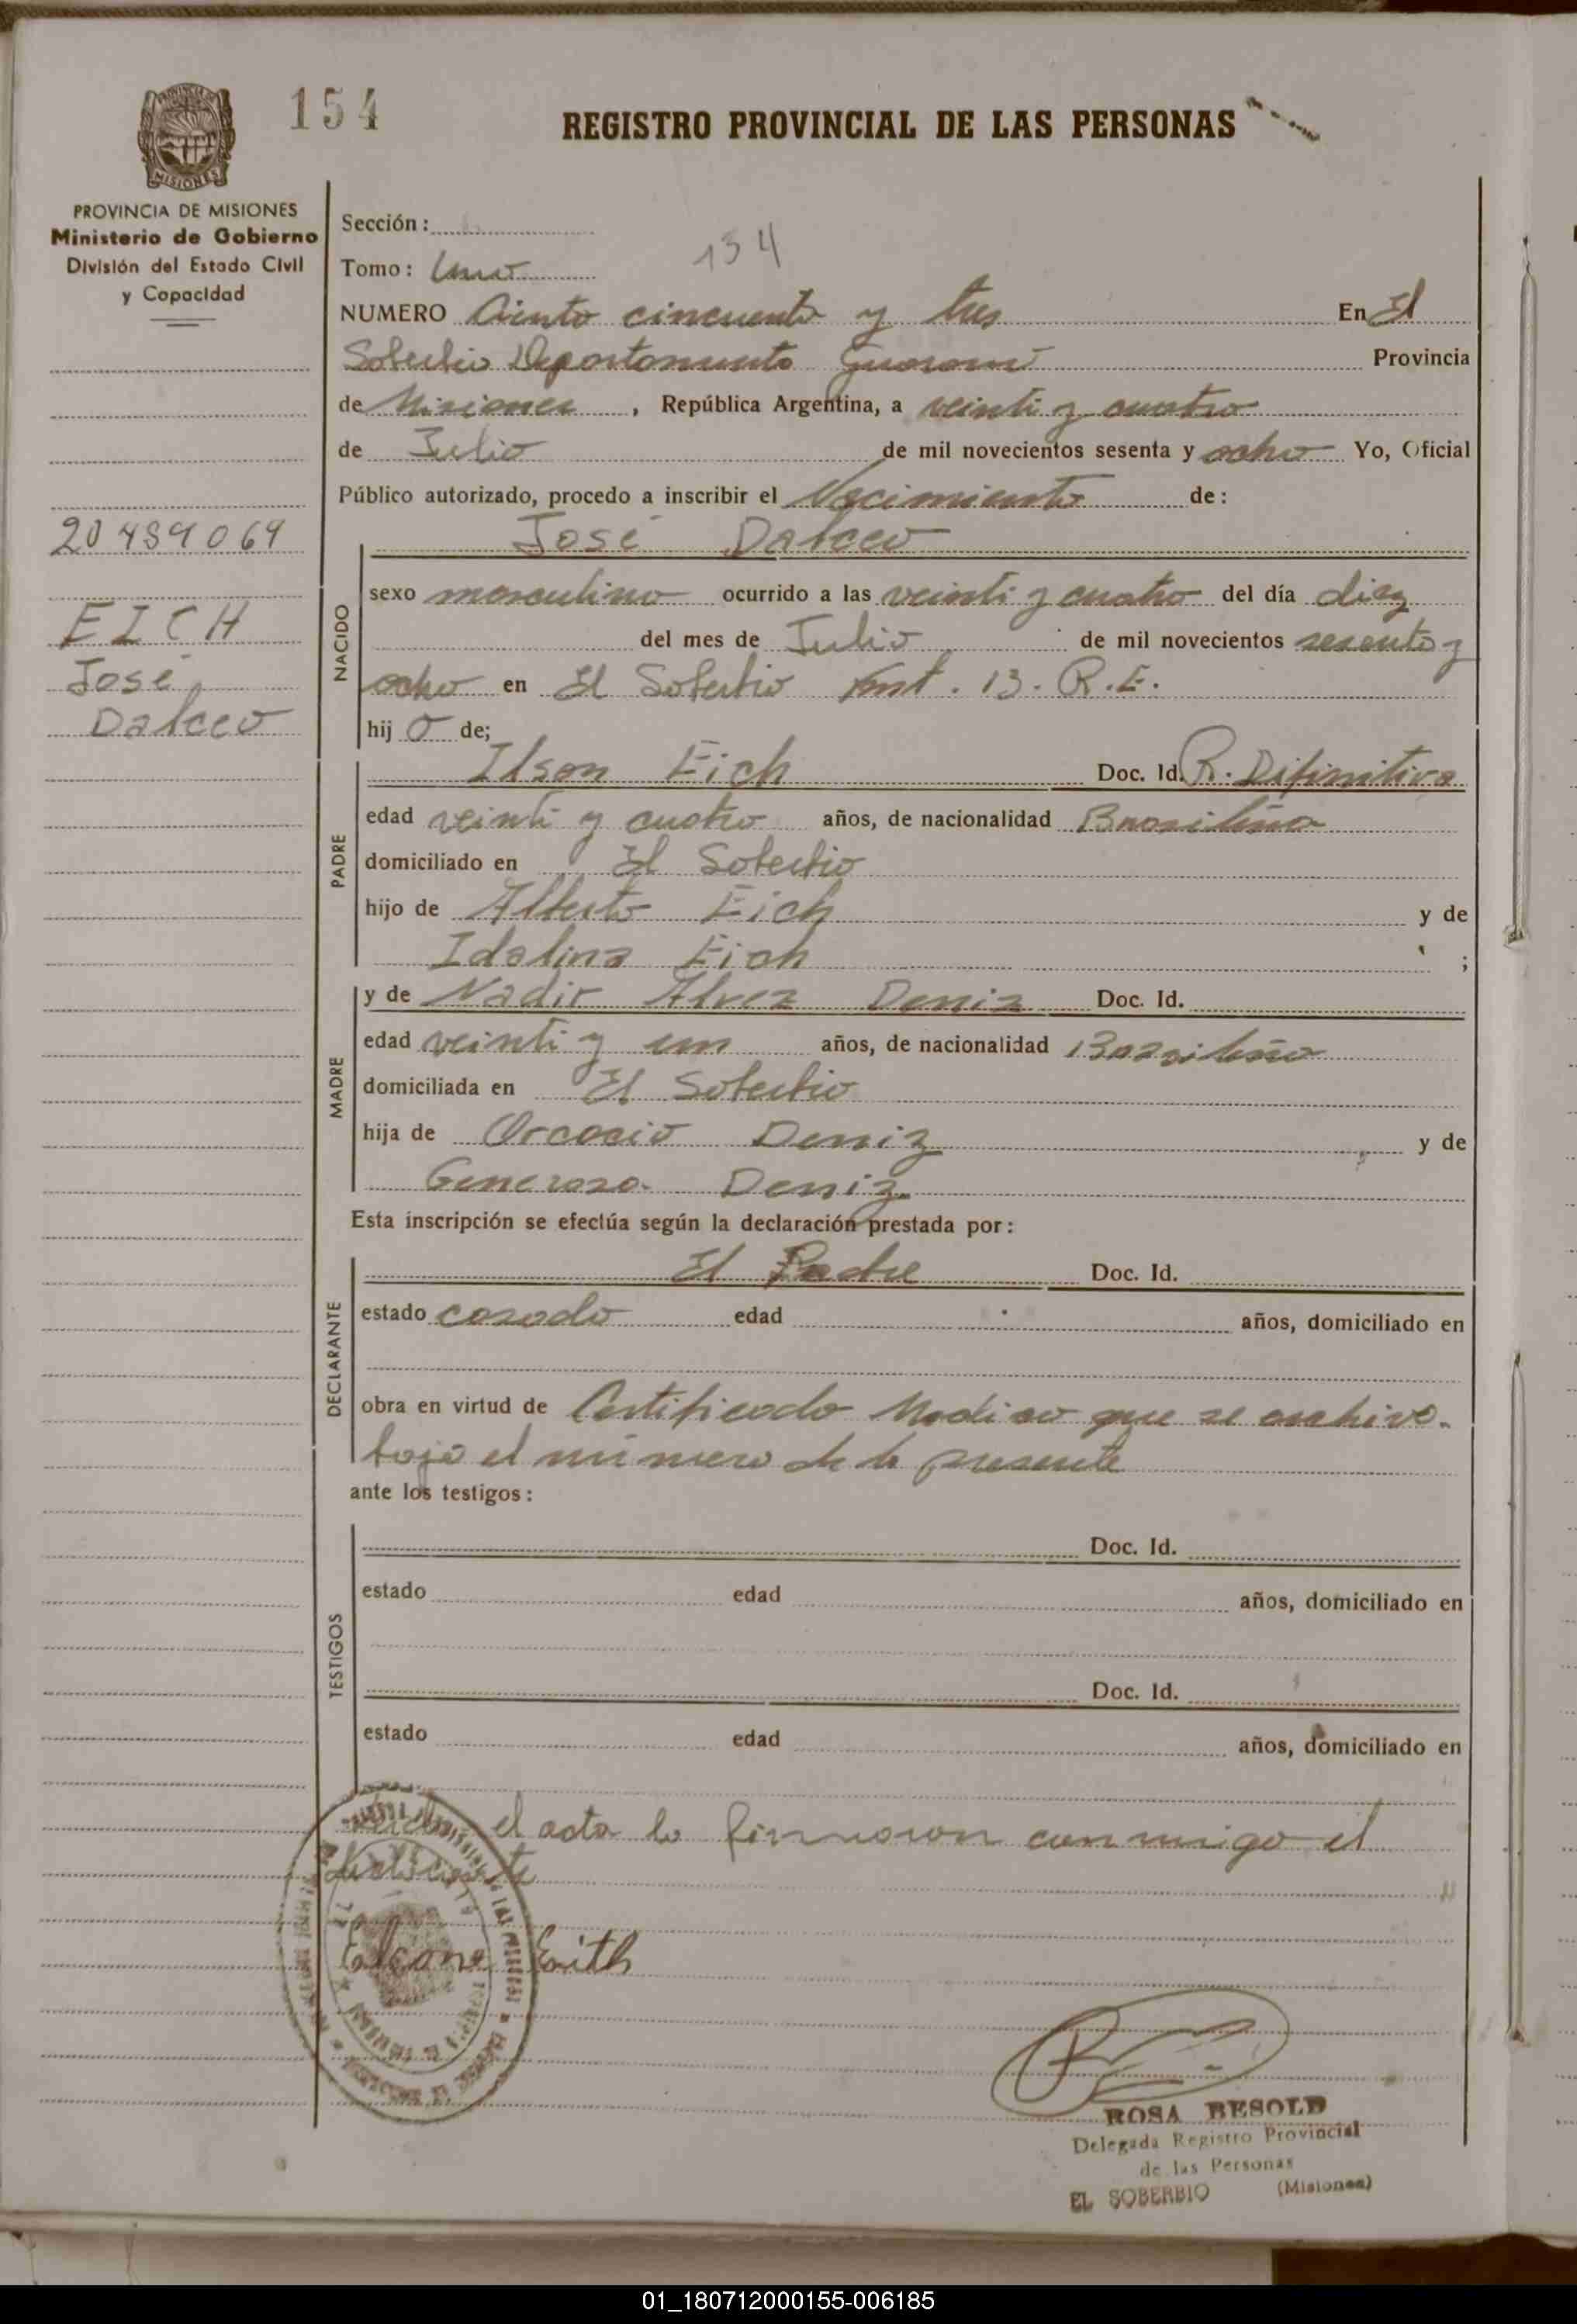 154
REGISTRO PROVINCIAL DE LAS PERSONAS
PROVINCIA DE MISIONES
Ministerio de Gobierno
División del Estado Civil
y Capacidad
20489069
EICH
José
Dalceo
Sección:
134
Tomo: Uno
NUMERO Ciento cincuenta y tres En El
Soberbio Departamento Guarani Provincia
de Misiones, República Argentina, a veinti y cuatro
de Julio de mil novecientos sesenta y ocho Yo, Oficial
Público autorizado, procedo a inscribir el Nacimiento de:
José Dalceo
NACIDO
sexo masculino ocurrido a las veinti y cuatro del día diez
del mes de Julio de mil novecientos sesenta y
ocho en El Soberbio 13. R.E.
hij o de;
PADRE
Ilson Eich Doc. Id. R. Difinitiva
edad veinti y cuatro años, de nacionalidad Brasileña
domiciliado en El Soberbio
hijo de Alberto Eich y de
Idalina Eich ;
MADRE
y de Nadir Alvez Deniz Doc. Id.
edad veinti y un años, de nacionalidad Brasileña
domiciliada en El Soberbio
hija de Orcacio Deniz y de
Generosa Deniz
Esta inscripción se efectúa según la declaración prestada por:
DECLARANTE
El Padre Doc. Id.
estado casado edad años, domiciliado en
obra en virtud de Certificado Medico que se archiva
bajo el número de la presente
ante los testigos:
TESTIGOS
Doc. Id.
estado edad años, domiciliado en
Doc. Id.
estado edad años, domiciliado en
el acta la firmaron conmigo el
ROSA BESOLD
Delegada Registro Provincial
de las Personas
EL SOBERBIO (Misiones)
01_180712000155-006185